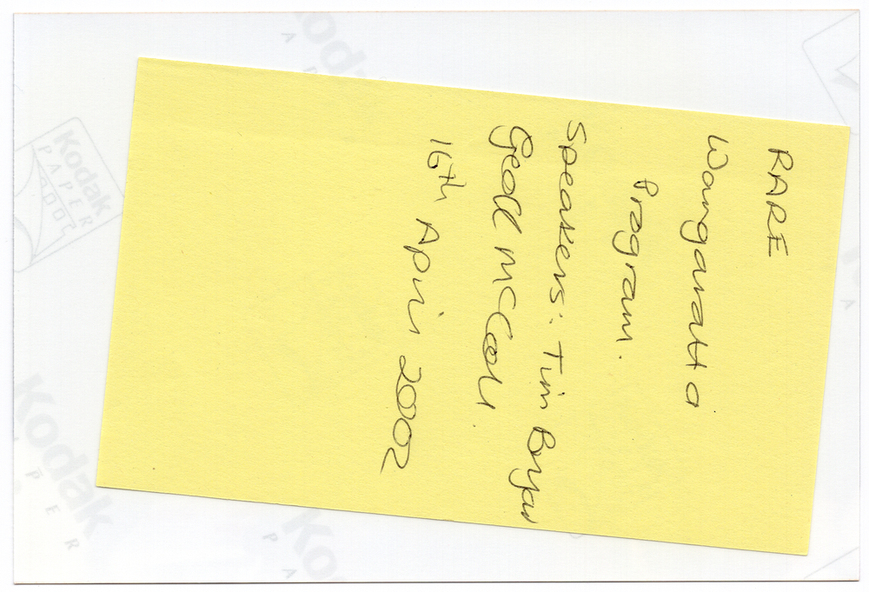 RARE
Wangaratta
Program.
Speakers: Tim Bryan
Geoff McColl.
16th April 2002
Kodak
PAPER
Kodak
PAPER
Kodak
Kodak